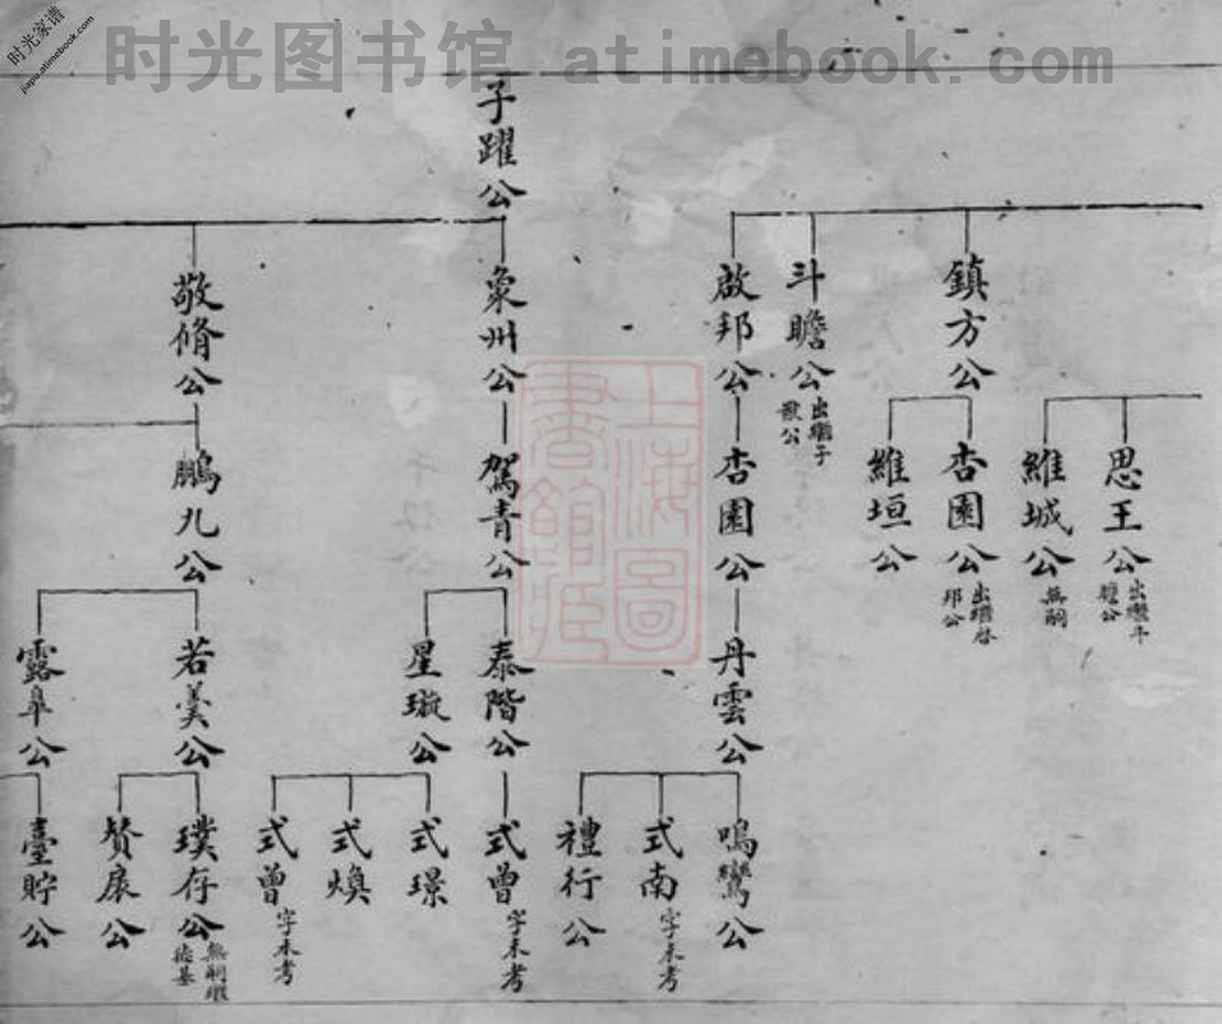 时光家谱
jiapu.atimebook.com
时光图书馆 atimebook.com
上海圖書館藏
子躍公
鎮方公
斗瞻公
出繼子
公
啟邦公
象州公
敬脩公
思王公
出繼斗
公
維城公
無嗣
杏園公
出繼啓
邦公
維垣公
杏園公
駕青公
鵬九公
丹雲公
泰階公
星璇公
若美公
露皐公
鳴鸞公
式南
字未考
禮行公
式曾
字未考
式璟
式煥
式曾
字未考
璞存公
無嗣
贊扆公
臺貯公